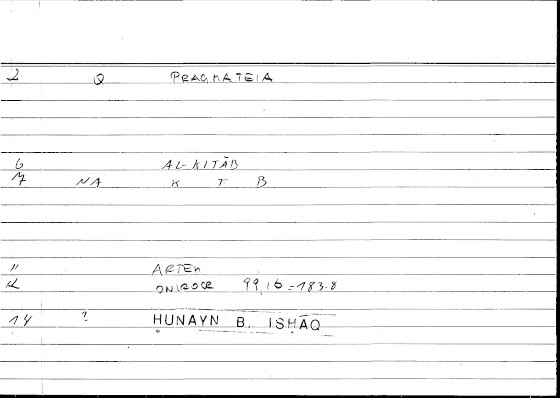 2 Q PRAGMATEIA
6 AL-KITĀB
7 NA K T B
11 ARTEM
12 ONIROCR 99,16=183.8
14 ? ḤUNAYN B. ISḤĀQ